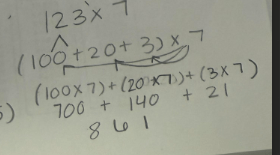 123 x 7
(100 + 20 + 3) x 7
(100 x 7) + (20 x 7) + (3 x 7)
5) 700 + 140 + 21
861